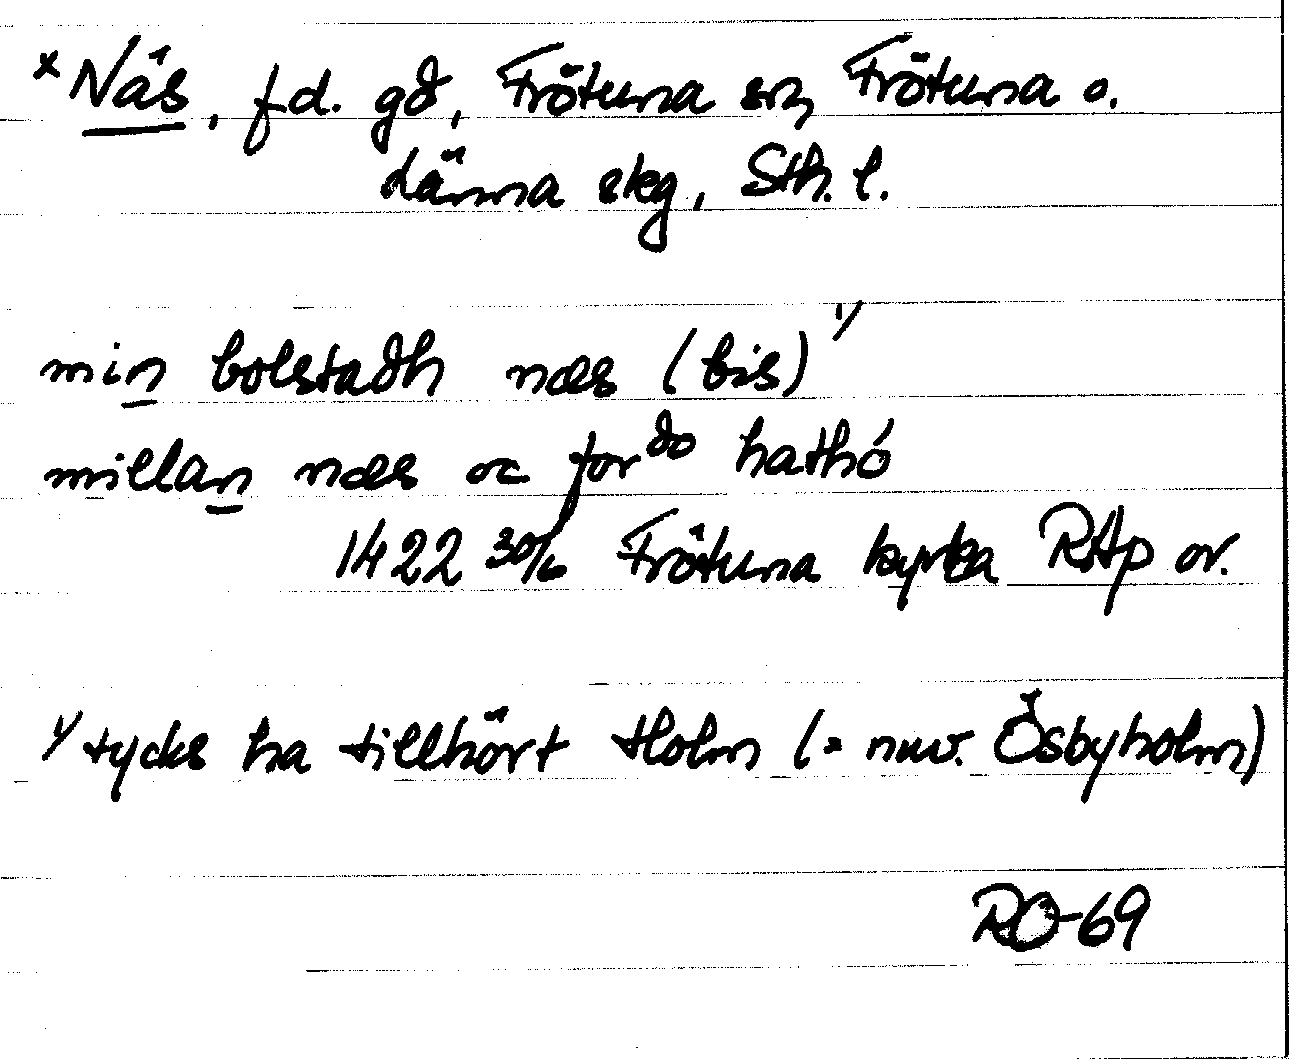 x Näs, fd. gd, Frötuna sn, Frötuna o.
länna skg, Sth. l.
min bolstadh næs (bis) 1/
millan næs oc for do hathó
1422 30/6 Frötuna kyrka RAp or.
1/ tycks ha tillhört Holm (= nuv. Ösbyholm)
RO-69